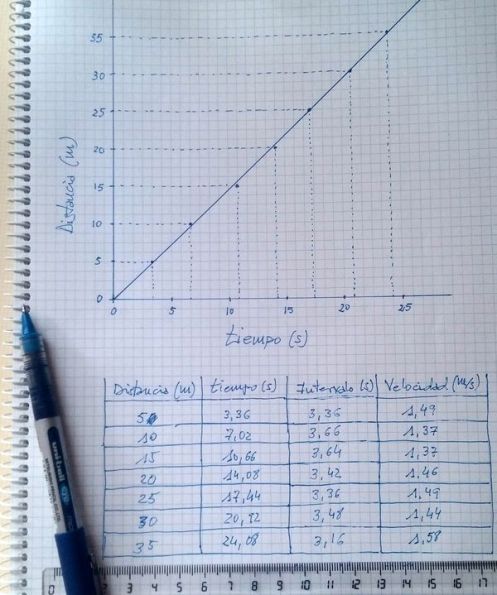 35
30
25
20
15
10
5
0
Distancia (m)
0 5 10 15 20 25
tiempo (s)
Distancia (m) tiempo (s) Intervalo (s) Velocidad (m/s)
5 3,36 3,36 1,49
10 7,02 3,66 1,37
15 10,66 3,64 1,37
20 14,08 3,42 1,46
25 17,44 3,36 1,49
30 20,92 3,48 1,44
35 24,08 3,16 1,58
uni-ball
0 2 3 4 5 6 7 8 9 10 11 12 13 14 15 16 17